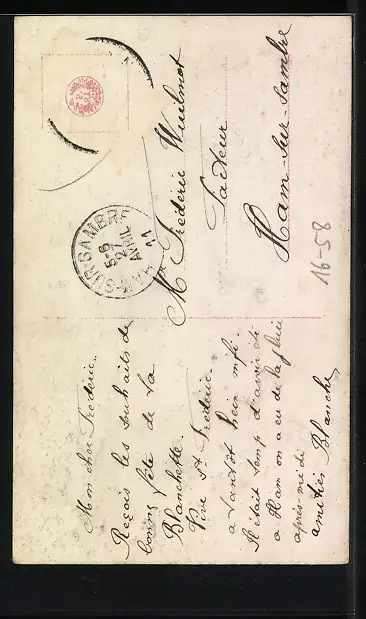 Mon cher Frédéric.
Reçois les souhaits de
bonne fête de ta
Blanchette.
Vive St Frédéric.
a tantôt heu mfi.
Il était temp d'avoir di
a Ham on a eu de la pluie
après-midi
amitiés Blanche
HAM-SUR-SAMBRE
5-6
27
AVRIL
11
Mr Frédéric Wuilmot
Facteur
Ham-sur-Sambre
16-58